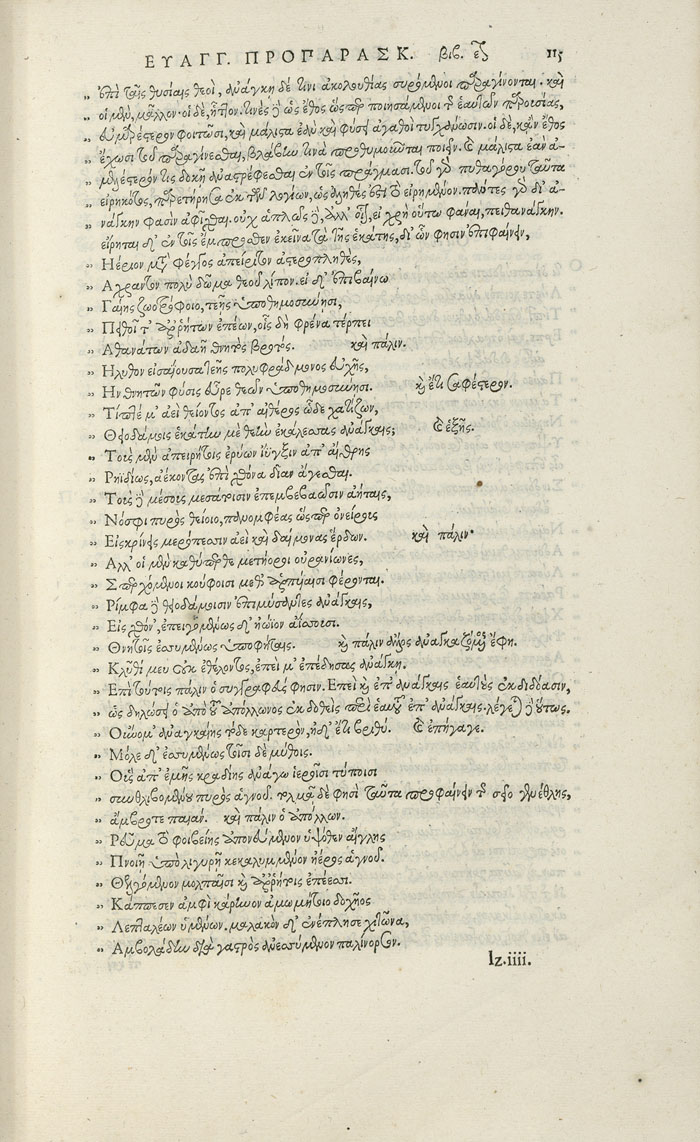 ΕΥΑΓΓ. ΠΡΟΠΑΡΑΣΚ. βιβ. 115
„ ἐπὶ ταῖς θυσίαις θεοὶ, ἀνάγκη δέ τινι ἀκολουθίας συρόμενοι παραγίνονται. καὶ
„ οἱ μὲν, μᾶλλον· οἱ δὲ, ἧττον. τινὲς δὲ ὡς ἔθος ὥσπερ ποιησάμενοι τῆς ἑαυτῶν παρουσίας,
„ εὐμαρέστερον φοιτῶσι, καὶ μάλιστα ἐὰν καὶ φύσει ἀγαθοὶ τυγχάνωσιν. οἱ δὲ, κἂν ἔθος
„ ἔχωσι τοῦ παραγίνεσθαι, βλάβην τινὰ προθυμοῦνται ποιεῖν. καὶ μάλιστα ἐὰν ἀ-
„ μελέστερόν τις δοκῇ ἀναστρέφεσθαι ἐν τοῖς πράγμασι. τοῦ γὰρ πυθαγόρου ταῦτα
„ εἰρηκότος, παρετήρησα ἐκ τῶν λογίων, ὡς ἀληθές ἐστι τὸ εἰρημένον. πάντες γὰρ δι' ἀ-
„ νάγκην φασὶν ἀφῖχθαι. οὐχ ἁπλῶς δὲ, ἀλλ' οἷον, εἰ χρὴ οὕτω φάναι, πειθανάγκην.
εἴρηται δ' ἐν τοῖς ἔμπροσθεν ἐκεῖνα τὰ τῆς ἑκάτης, δι' ὧν φησιν ἐπιφαίνειν,
„ Ηέριον μετὰ φέγγος ἀπείριτον ἀστεροπληθὲς,
„ Αχραντον πολὺ δῶμα θεοῦ λίπον. εἰ δ' ἐπιβαίνω
„ Γαίης ζωοτρόφοιο, τεῆς ὑποθημοσύνῃσι,
„ Πειθοῖ τ' ἀρρήτων ἐπέων, οἷς δὴ φρένα τέρπει
„ Αθανάτων ἀδαῆ θνητὸς βροτός. καὶ πάλιν.
„ Ηλυθον εἰσαΐουσα τεῆς πολυφράδμονος εὐχῆς,
„ Ην θνητῶν φύσις εὗρε θεῶν ὑποθημοσύνῃσι. καὶ ἔτι σαφέστερον.
„ Τίπτέ μ' ἀεὶ θείοντος ἀπ' αἰθέρος ὧδε χατίζων,
„ Θειοδάμοις ἑκάτην με θεὴν ἐκάλεσσας ἀνάγκαις; καὶ ἑξῆς.
„ Τοὺς μὲν ἀπειρήτοις ἐρύων ἴϋγξιν ἀπ' αἴθρης
„ Ρηϊδίως, ἀέκοντας ἐπὶ χθόνα δῖαν ἄγεσθαι.
„ Τοὺς δὲ μέσοις μεσάτοισιν ἐπεμβεβαῶσιν ἀήταις,
„ Νόσφι πυρὸς θείοιο, πανομφέας ὥσπερ ὀνείρους
„ Εἰσκρίνεις μερόπεσσιν ἀεὶ καὶ δαίμονας ἔρδων. καὶ πάλιν.
„ Αλλ' οἱ μὲν καθύπερθε μετήοροι οὐρανίωνες,
„ Σπερχόμενοι κούφοισι μεθ' ἁρπυίαισι φέρονται.
„ Ρίμφα δὲ θειοδάμοισιν ἐπιμύσαντες ἀνάγκαις,
„ Εἰς χθόν', ἐπειγομένως δ' ἠώϊον ἀΐσσουσι.
„ Θνητοῖς ἐσσυμένως ὑποφήταις. καὶ πάλιν ἄλλος ἀναγκαζόμενος ἔφη.
„ Κλῦθί μευ οὐκ ἐθέλοντος, ἐπεί μ' ἐπέδησας ἀνάγκῃ.
„ Επὶ τούτοις πάλιν ὁ συγγραφεύς φησιν. Επεὶ καὶ ἐπ' ἀνάγκαις ἑαυτοὺς ἐκδιδόασιν,
„ ὡς δηλώσει ὁ ὑπὸ τοῦ ἀπόλλωνος ἐκδοθεὶς περὶ ἑαυτοῦ ἐπ' ἀνάγκαις. λέγεται δὲ οὕτως.
„ Οὔνομ' ἀναγκαίης τόδε καρτερὸν, ἠδ' ἔτι βριθύ. καὶ ἐπήγαγε.
„ Μόλε δ' ἐσσυμένως τοῖσι δὲ μύθοις.
„ Οὓς ἀπ' ἐμῆς κραδίης ἀνάγω ἱεροῖσι τύποισι
„ συνθλιβομένου πυρὸς ἁγνοῦ. τολμᾷ δὲ φησὶ ταῦτα προφαίνειν τῆς σεο γενέθλης,
„ ἄμβροτε παιάν. καὶ πάλιν ὁ ἀπόλλων.
„ Ρεῦμα τὸ φοιβείης ἀπονεύμενον ὑψόθεν αἴγλης
„ Πνοιῇ ὑπὸ λιγυρῇ κεκαλυμμένον ἠέρος ἁγνοῦ.
„ Θελγόμενον μολπαῖσι καὶ ἀρρήτοις ἐπέεσσι.
„ Κάππεσεν ἀμφὶ κάρηνον ἀμωμήτοιο δοχῆος
„ Λεπταλέων ὑμένων. μαλακὸν δ' ἐνέπλησε χιτῶνα,
„ Αμβολάδην διὰ γαστρὸς ἀνεσσύμενον παλίνορσον.
Iz.iiii.